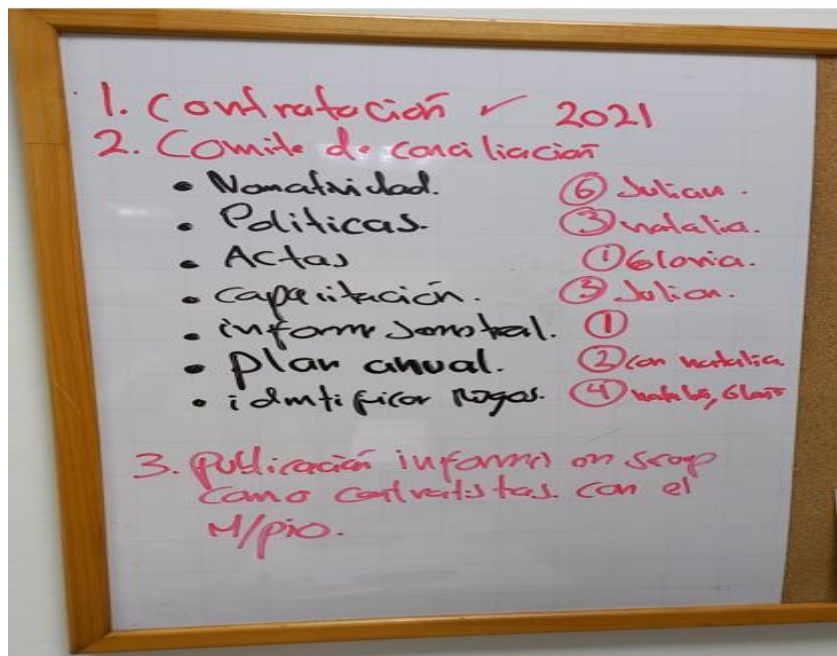 1. Contratación ✓ 2021
2. Comite de conciliación
• Nomatividad. ⑥ Julian.
• Politicas. ③ natalia.
• Actas ① Gloria.
• capacitación. ③ Julian.
• informe semstral. ①
• plan anual. ② con natalia.
• idmtificar ④
3. publicación informes en secop
como contratistas. con el
M/pio.